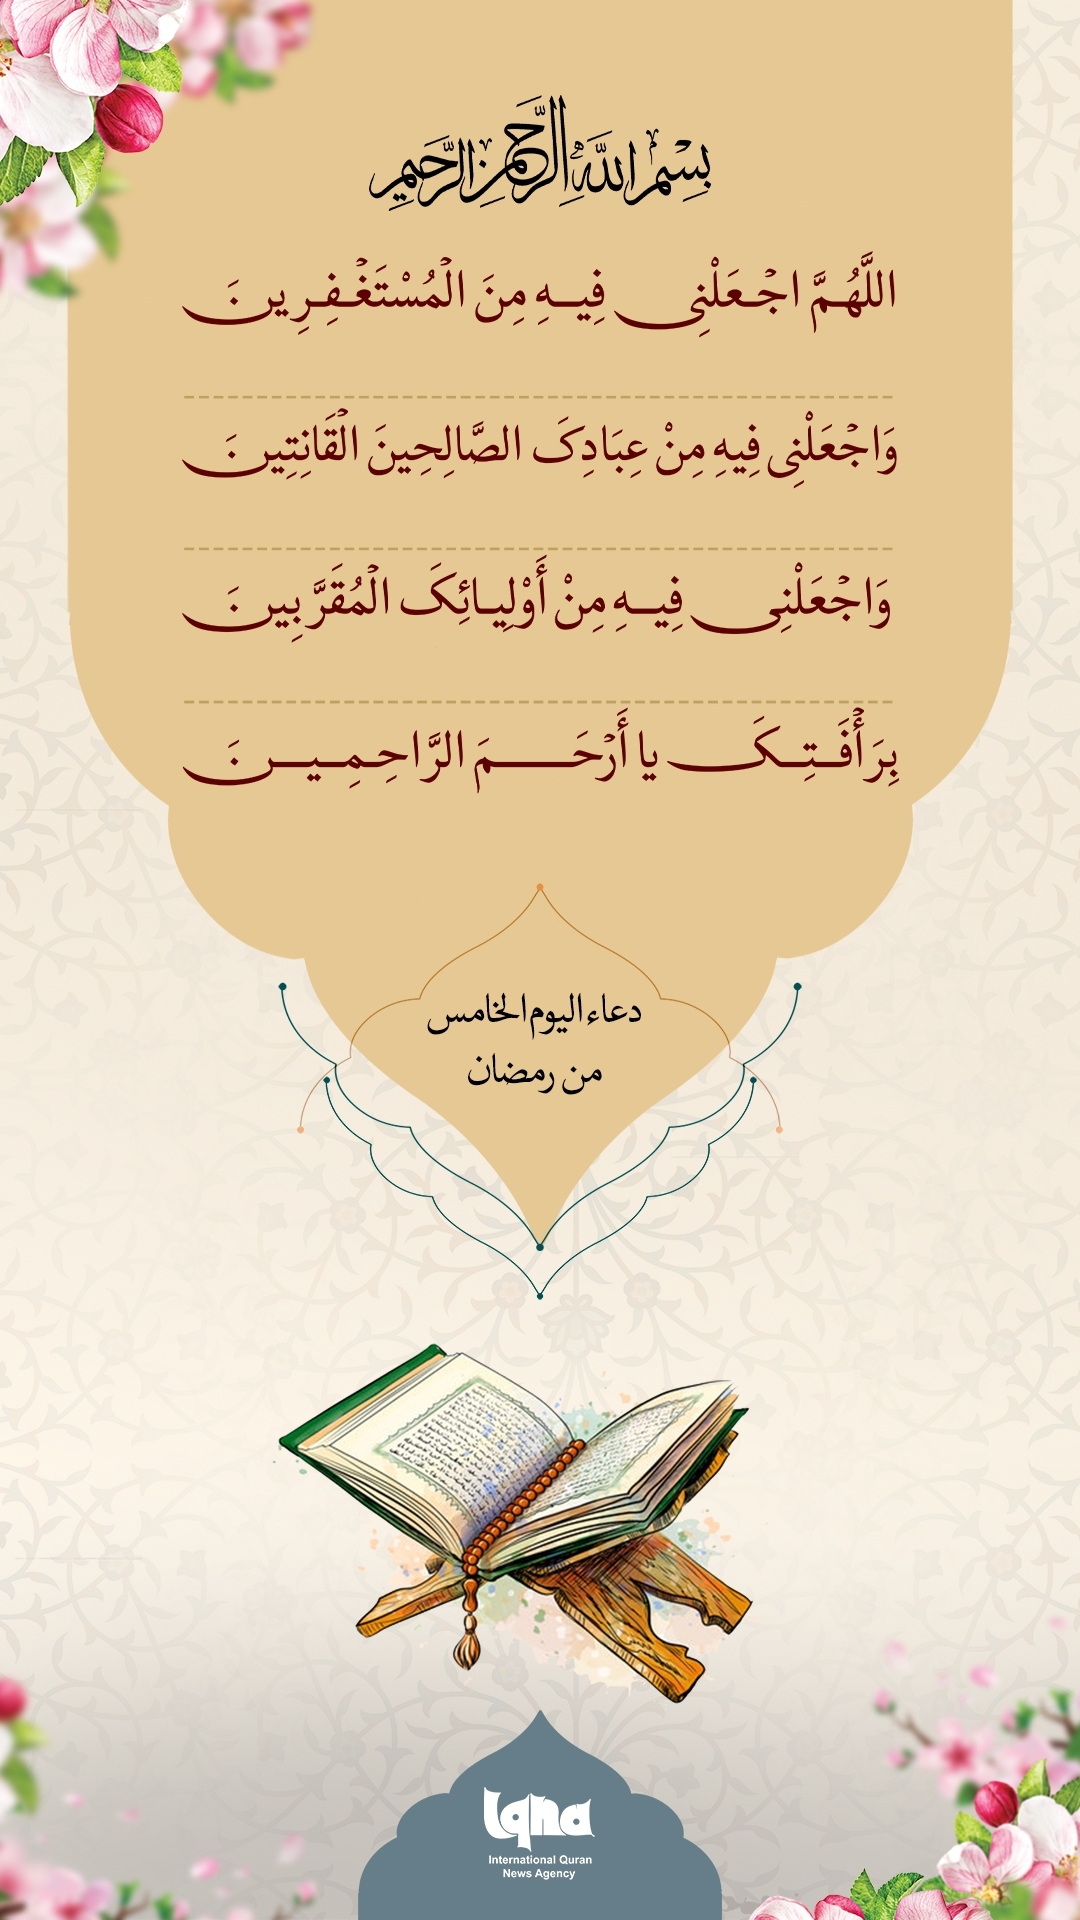 بِسْمِ اللَّهِ الرَّحْمَنِ الرَّحِيمِ
اللَّهُمَّ اجْعَلْنِی فِيهِ مِنَ الْمُسْتَغْفِرِينَ
وَاجْعَلْنِی فِيهِ مِنْ عِبَادِکَ الصَّالِحِينَ الْقَانِتِينَ
وَاجْعَلْنِی فِيهِ مِنْ أَوْلِيَائِکَ الْمُقَرَّبِينَ
بِرَأْفَتِکَ يا أَرْحَمَ الرَّاحِمِينَ
دعاء اليوم الخامس
من رمضان
iqna
International Quran
News Agency